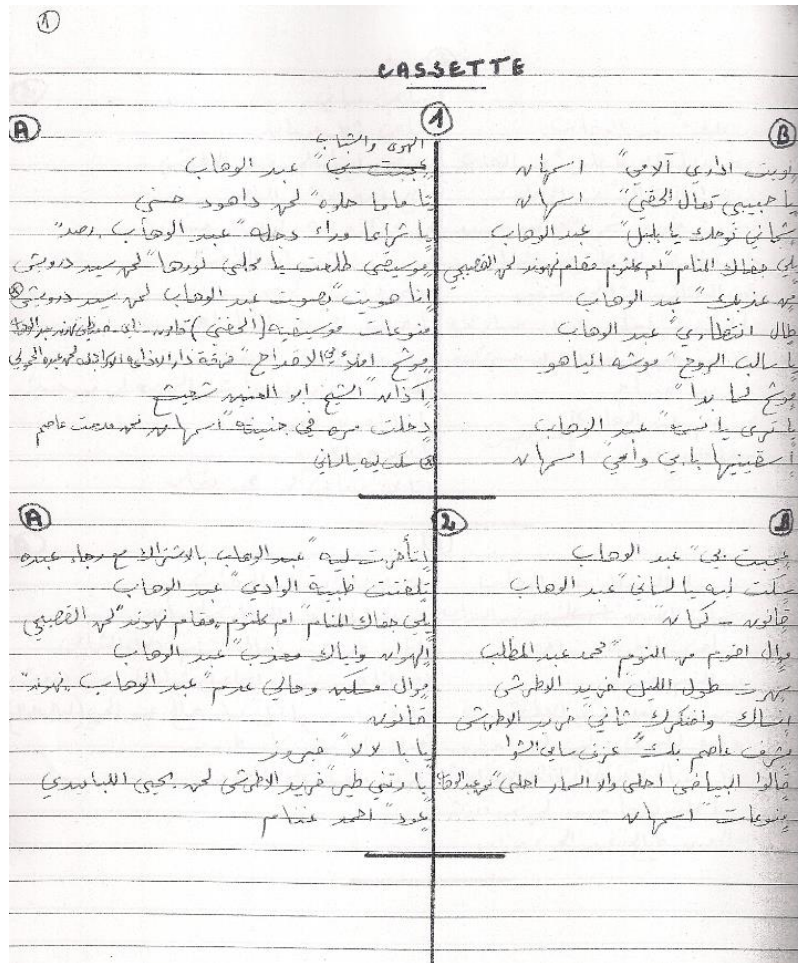 1
CASSETTE
1
A
الهوى والشباب
عجبت بي" عبد الوهاب
يا ماما حلوه" لحن داهود حسني
يا شراعا وراء دجله" عبد الوهاب رصد"
موسيقى طلعت يا محلى نورها" لحن سيد درويش
انا هويت" بصوت عبد الوهاب لحن سيد درويش
منوعات موسيقيه (الحفني) قانون ناي
موشح املأ لي الاقداح فرقة دار الاذاعه لحن
اذان" الشيخ ابو العنين شعيشع
دخلت مره في جنينه" اسمهان لحن مدحت عاصم
سكت ليه يا لساني
B
نويت اداري آلامي" اسمهان
يا حبيبي تعال الحقني" اسمهان
شجاني نوحك يا بلبل" عبد الوهاب
يللي جفاك المنام" ام كلثوم مقام نهوند لحن القصبجي
مين عذبك" عبد الوهاب
طال انتظاري" عبد الوهاب
يا سالب الروح" موشه الياهو
موشح لما بدا"
يا ترى يا نسمة" عبد الوهاب
اسقينيها بابي وامي" اسمهان
2
A
اتأخرت ليه" عبد الوهاب بالاشتراك مع رجاء عبده
تلفتت ظبية الوادي" عبد الوهاب
يللي جفاك المنام" ام كلثوم مقام نهوند" لحن القصبجي
الهوان وياك معزه" عبد الوهاب
موال مسكين وحالي عدم" عبد الوهاب نهوند"
قانون
يابا لالا" فيروز
يا ريتني طير" فريد الاطرش لحن يحيى اللبابيدي
عود" احمد
B
عجبت بي" عبد الوهاب
سكت ليه يا لساني" عبد الوهاب
قانون - كمان
موال اقوم من النوم" محمد عبد المطلب
سهرت طول الليل" فريد الاطرش
انساك وافتكرك ثاني" فريد الاطرش
بشرف عاصم بك" عزف سامي الشوا
قالوا البياض احلى والا السمار احلى" لحن عبد الوهاب
منوعات" اسمهان